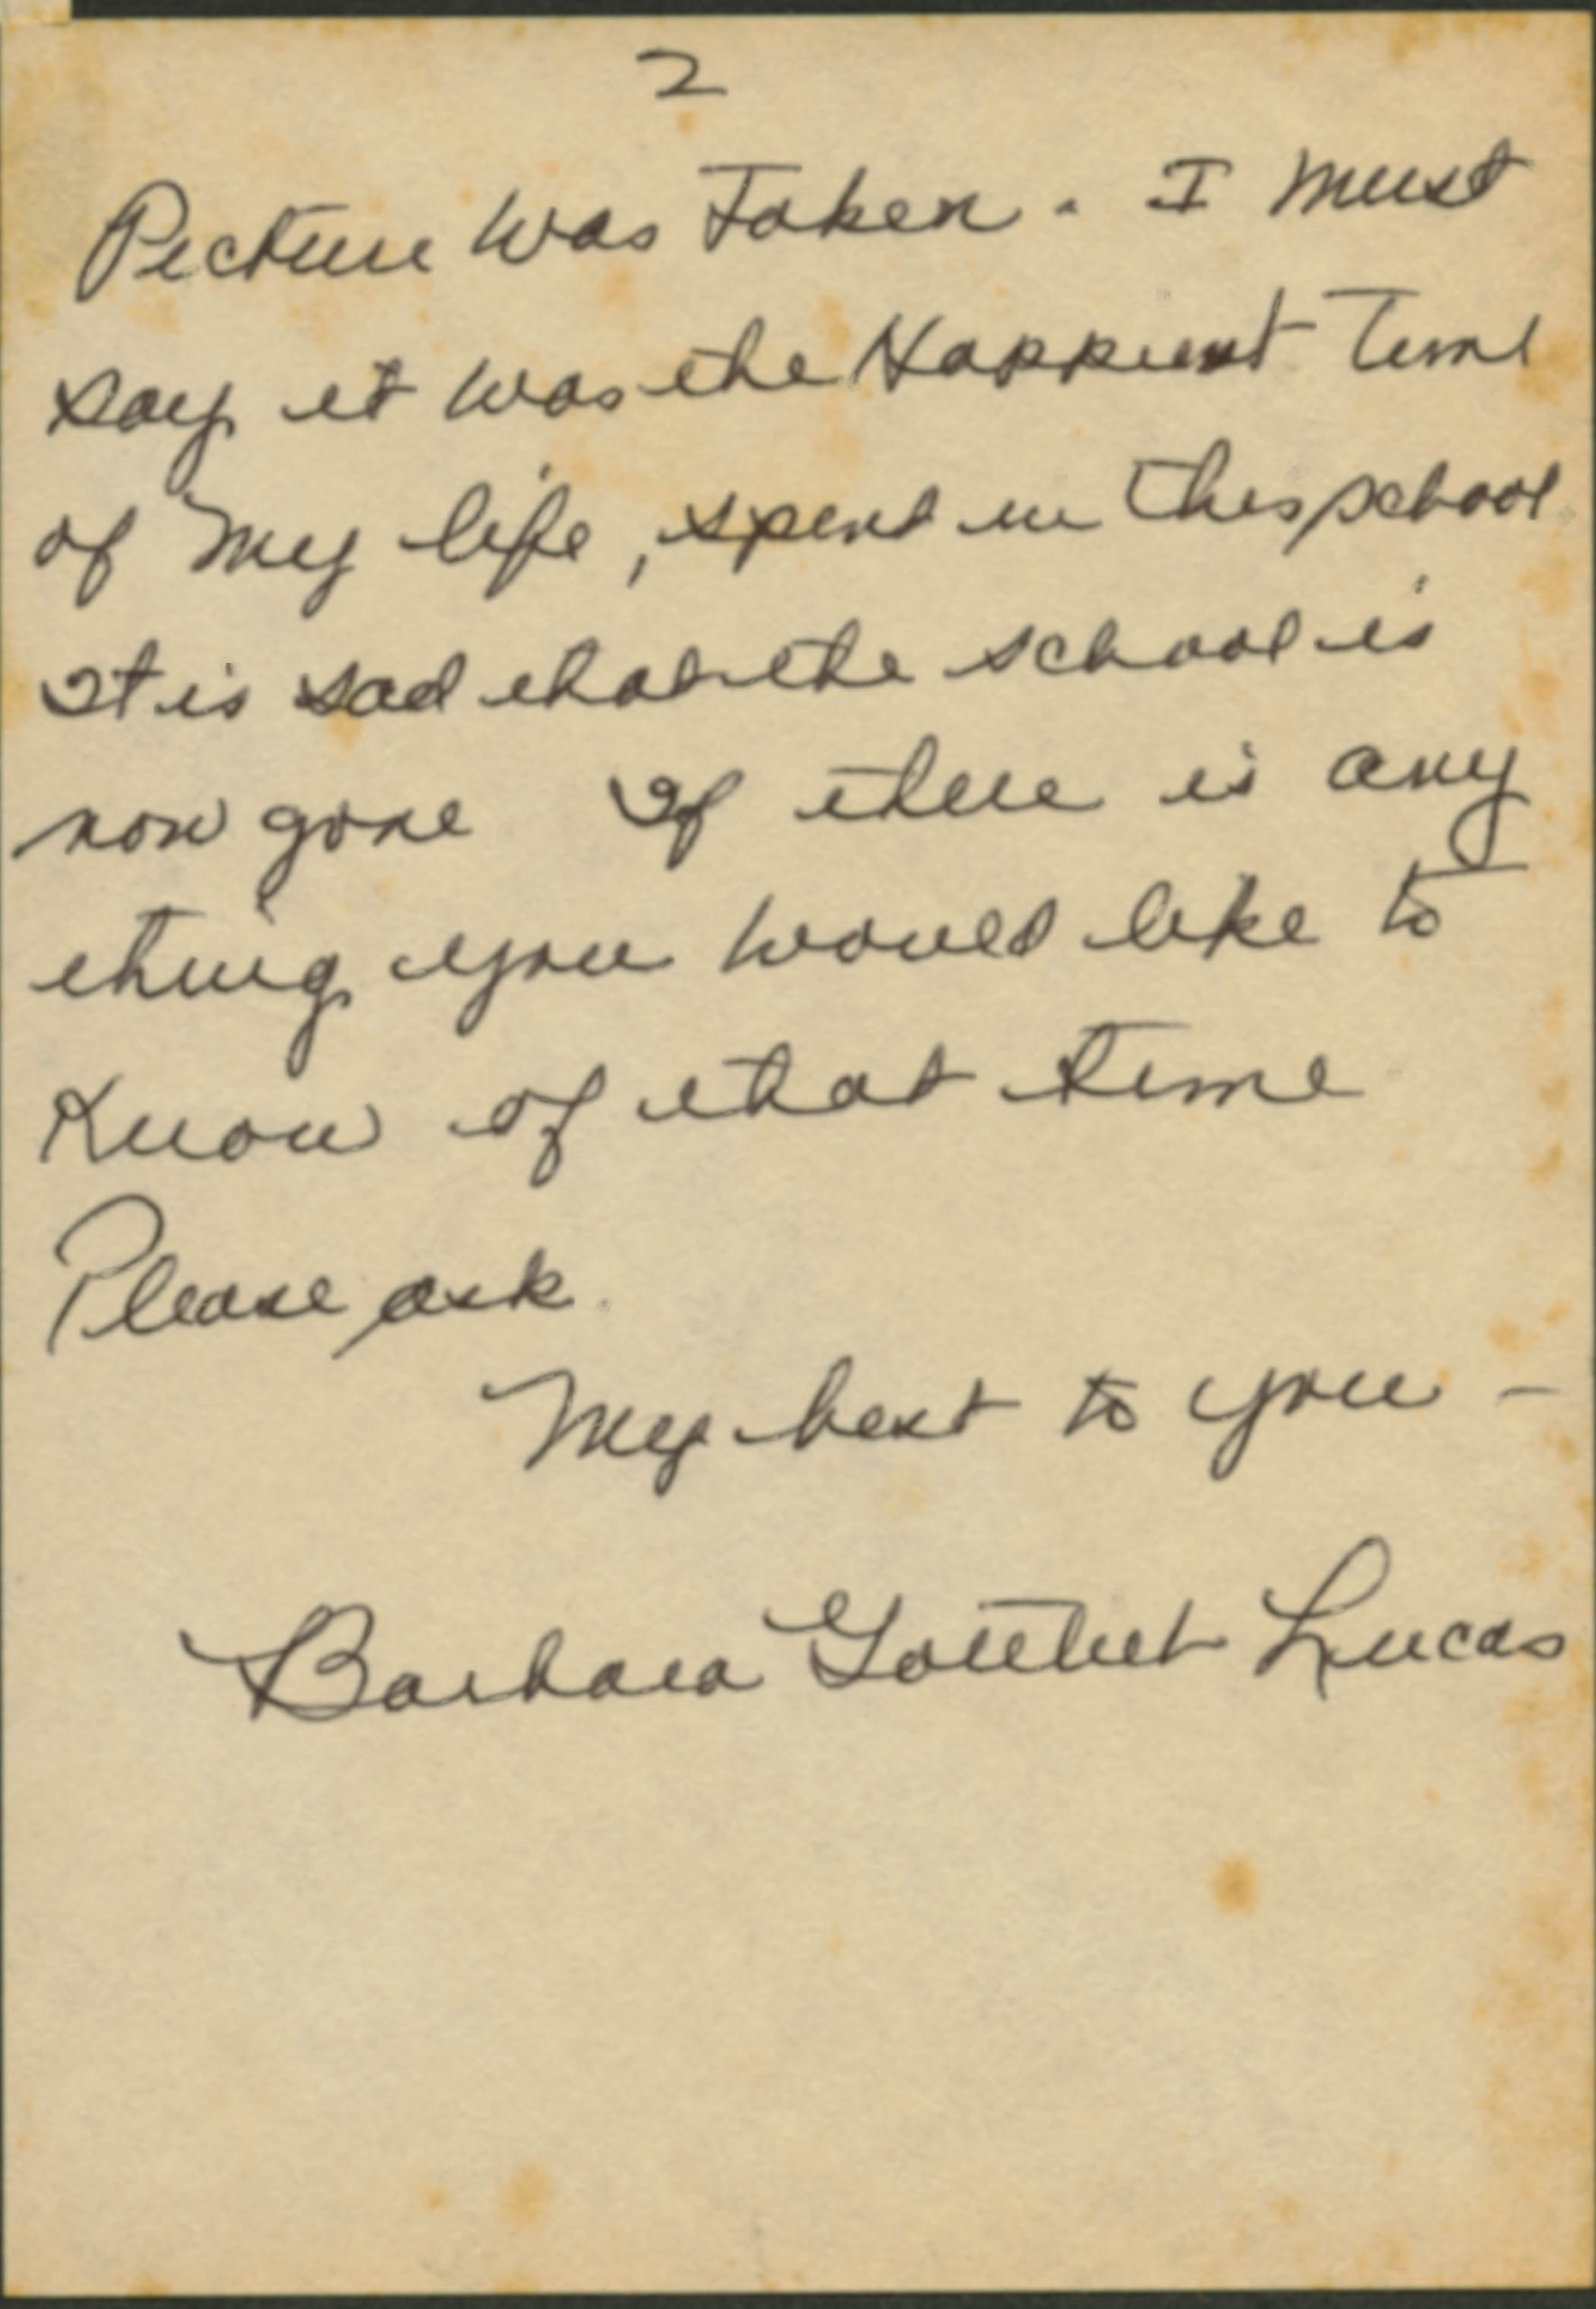 2
Picture was Taken. I must
say it was the Happiest Time
of my life, spent in this school
It is sad that the school is
now gone If there is any
thing you would like to
know of that time
Please ask.
My best to you -
Barbara Gottlieb Lucas